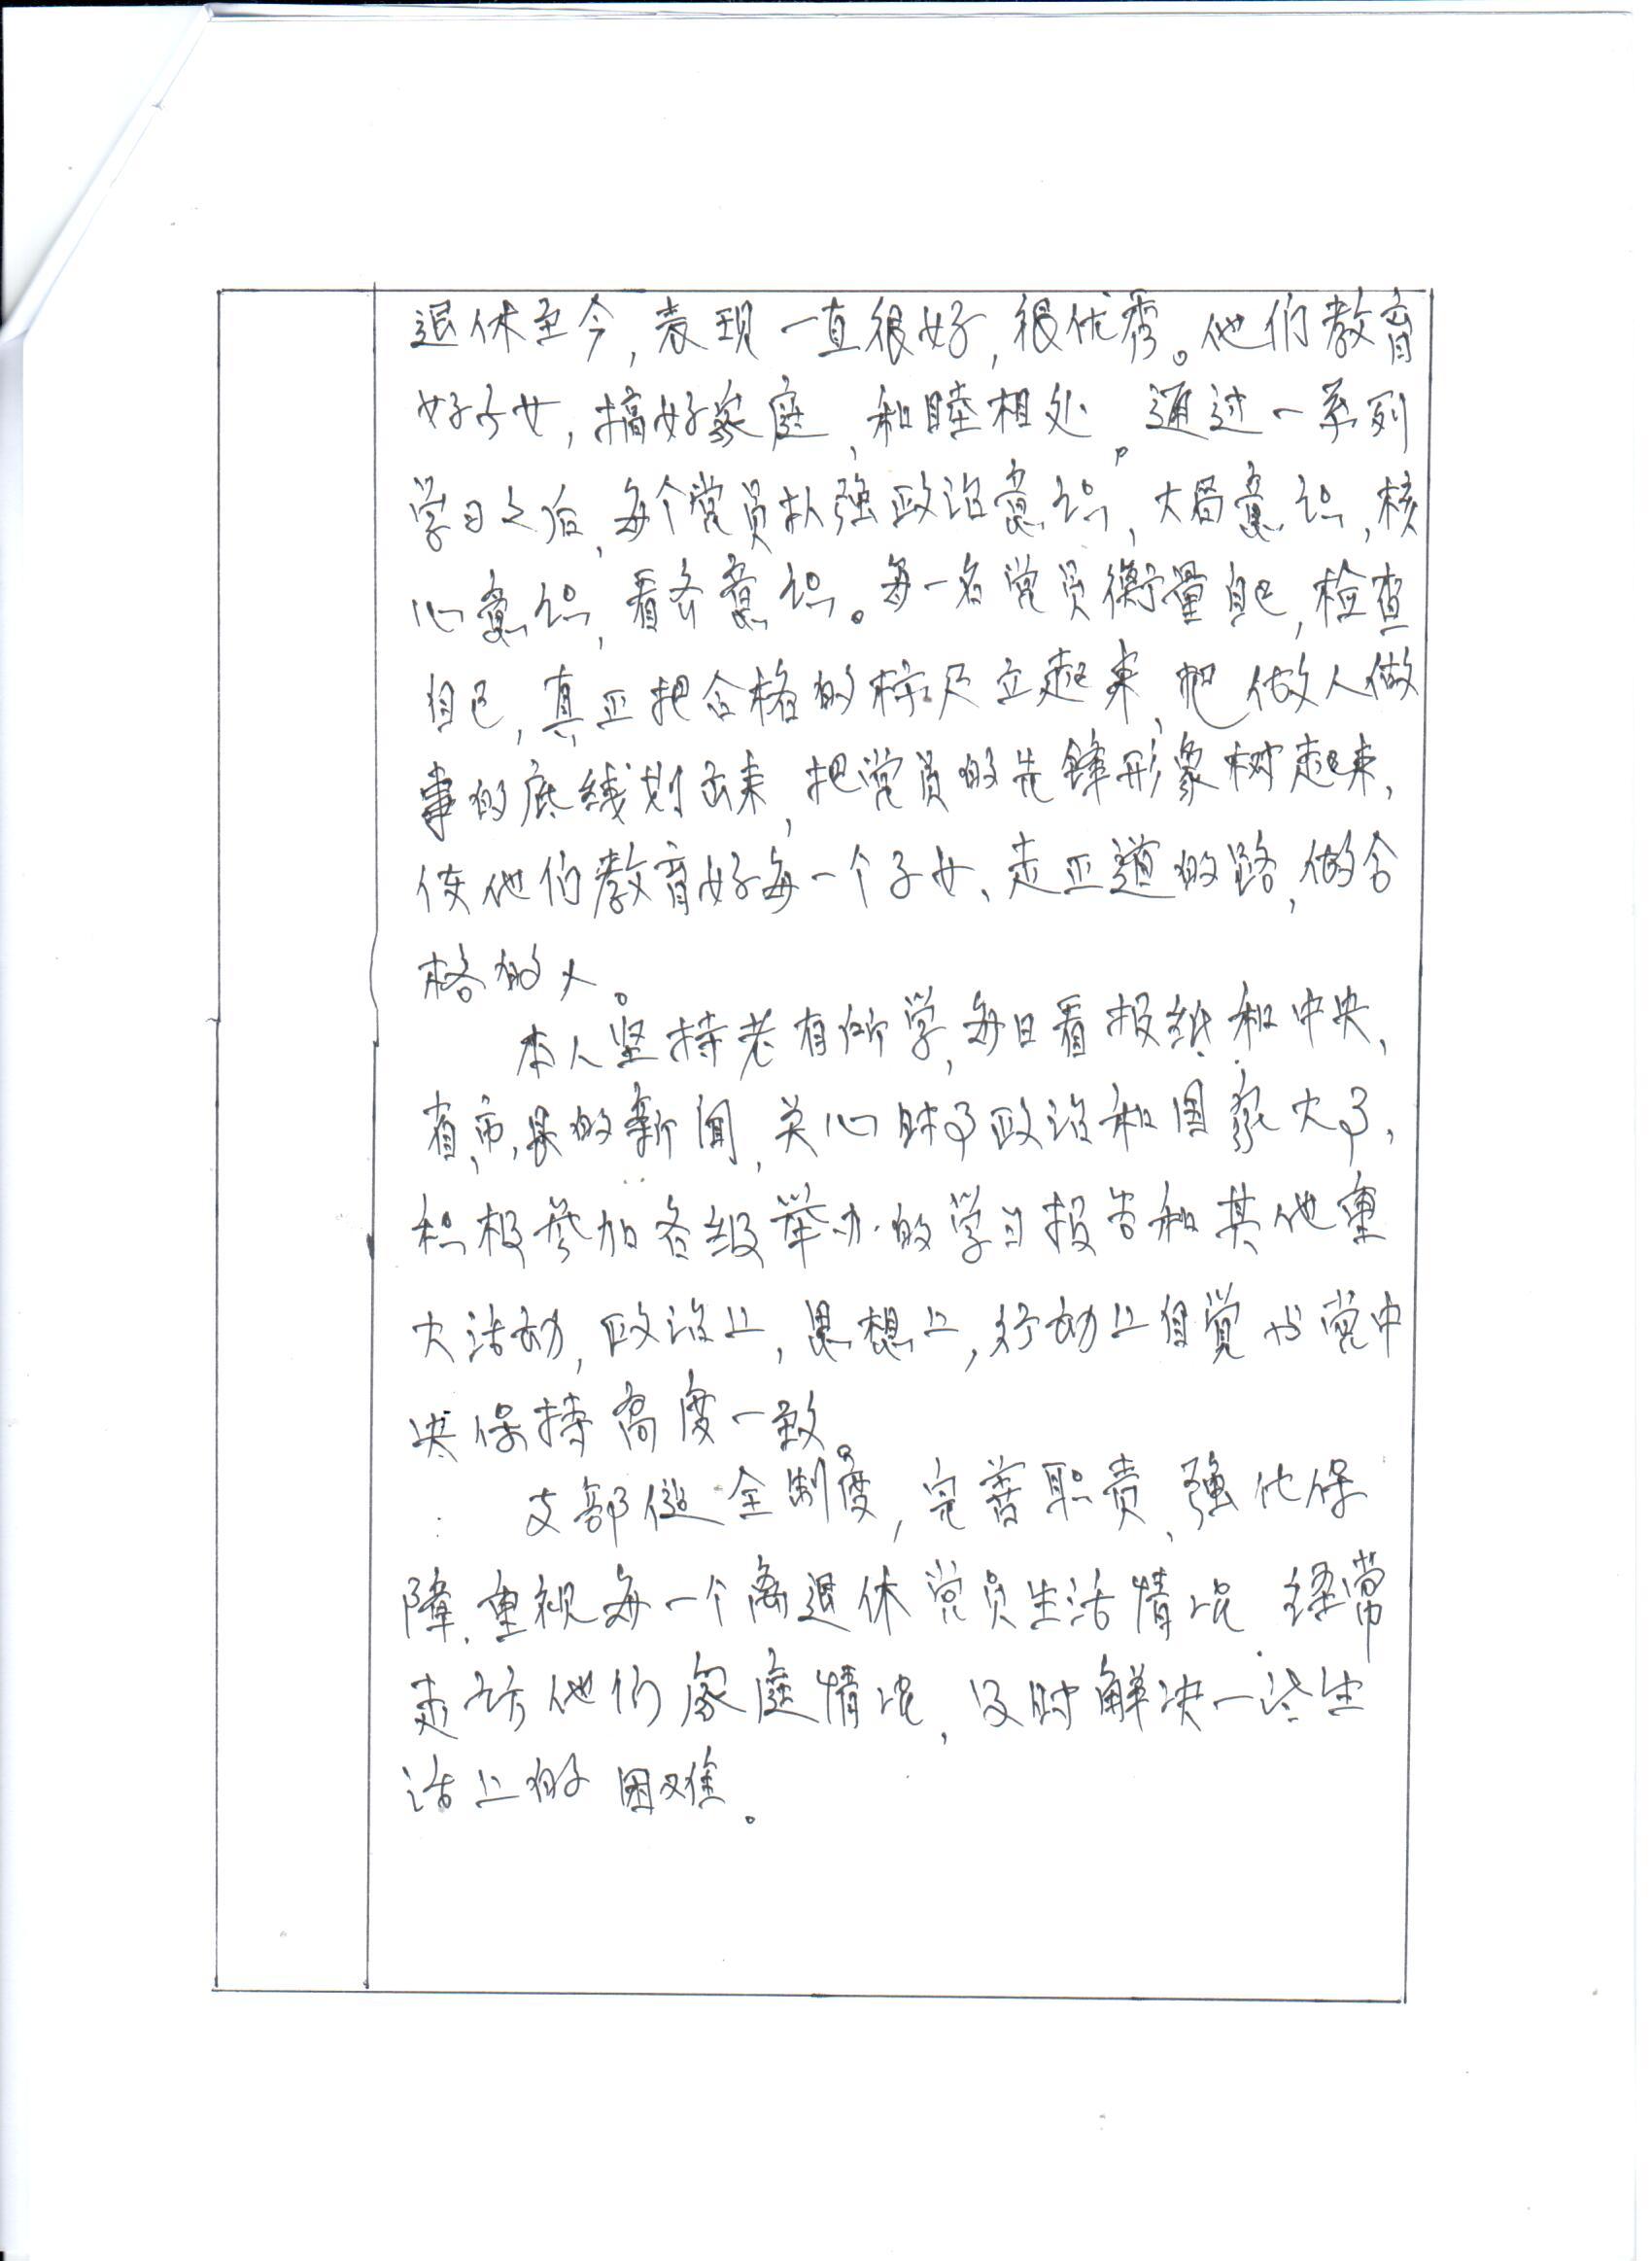 退休至今,表现一直很好,很优秀。他们教育
好子女,搞好家庭,和睦相处。通过一系列
学习之后,每个党员加强政治意识,大局意识,核
心意识,看齐意识。每一名党员衡量自己,检查
自己,真正把合格的标尺立起来,把做人做
事的底线划出来,把党员的先锋形象树起来,
使他们教育好每一个子女、走正道的路,做合
格的人。
本人坚持老有所学,每日看报纸和中央、
省,市,县的新闻,关心时事政治和国家大事,
积极参加各级举办的学习报告和其他重
大活动,政治上,思想上,行动上自觉与党中
央保持高度一致。
支部健全制度,完善职责,强化保
障,重视每一个离退休党员生活情况.经常
走访他们家庭情况,及时解决一些生
活上的困难。